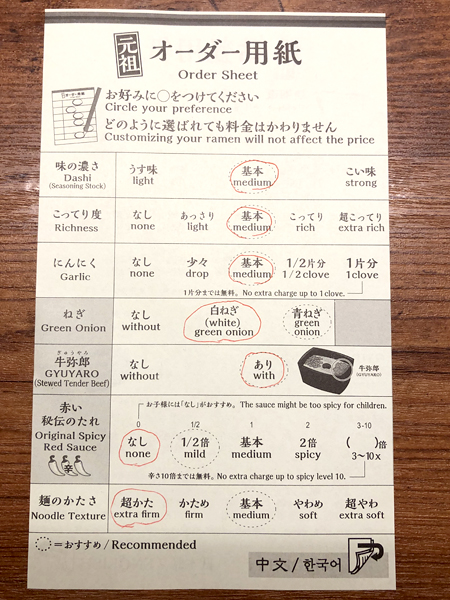 元祖 オーダー用紙
Order Sheet
お好みに○をつけてください
Circle your preference
どのように選ばれても料金はかわりません
Customizing your ramen will not affect the price
味の濃さ うす味 基本 こい味
Dashi light medium strong
(Seasoning Stock)
こってり度 なし あっさり 基本 こってり 超こってり
Richness none light medium rich extra rich
にんにく なし 少々 基本 1/2片分 1片分
Garlic none drop medium 1/2 clove 1clove
1片分までは無料。No extra charge up to 1 clove.
ねぎ なし 白ねぎ 青ねぎ
Green Onion without (white) green onion green onion
ぎゅうやろう
牛弥郎 なし あり 牛弥郎
GYUYARO without with
(Stewed Tender Beef)
お子様には「なし」がおすすめ。The sauce might be too spicy for children.
赤い 0 1/2 1 2 3-10
秘伝のたれ なし 1/2倍 基本 2倍 ( )倍
Original Spicy none mild medium spicy 3~10x
Red Sauce
辛
辛さ10倍までは無料。No extra charge up to spicy level 10.
麺のかたさ 超かた かため 基本 やわめ 超やわ
Noodle Texture extra firm firm medium soft extra soft
=おすすめ / Recommended
中文 / 한국어